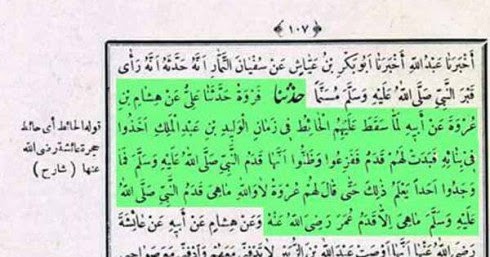 ﴿ ١٠٧ ﴾
أَخْبَرَنَا عَبْدُ اللهِ أَخْبَرَنَا اَبُوبَكْرِ بْنُ عَيَّاشٍ عَنْ سُفْيَانَ التَّمَّارِ اَنَّهُ حَدَّثَهُ اَنَّهُ رَأَى
قَبْرَ النَّبِيِّ صَلَّى اللهُ عَلَيْهِ وَسَلَّمَ مُسَنَّمًا حَدَّثَنَا فَرْوَةُ حَدَّثَنَا عَلِيٌّ عَنْ هِشَامِ بْنِ
عُرْوَةَ عَنْ أَبِيهِ لَمَّا سَقَطَ عَلَيْهِمُ الْحَائِطُ فِي زَمَانِ الْوَلِيدِ بْنِ عَبْدِ الْمَلِكِ اَخَذُوا
فِي بِنَائِهِ فَبَدَتْ لَهُمْ قَدَمٌ فَفَزِعُوا وَظَنُّوا اَنَّهَا قَدَمُ النَّبِيِّ صَلَّى اللهُ عَلَيْهِ وَسَلَّمَ فَمَا
وَجَدُوا اَحَداً يَعْلَمُ ذٰلِكَ حَتَّى قَالَ لَهُمْ عُرْوَةُ لَا وَاللهِ مَاهِىَ قَدَمُ النَّبِيِّ صَلَّى اللهُ
عَلَيْهِ وَسَلَّمَ مَاهِىَ اِلَّا قَدَمُ عُمَرَ رَضِىَ اللهُ عَنْهُ وَعَنْ هِشَامٍ عَنْ أَبِيهِ عَنْ عَائِشَةَ
رَضِىَ اللهُ عَنْهَا اَنَّهَا اَوْصَتْ عَبْدَ اللهِ بْنَ الزُّبَيْرِ لَا تَدْفِنِّى مَعَهُمْ وَادْفِنِّى مَعَ صَوَاحِبِى
قوله الحائط أى حائط
حجرة عائشة رضى الله
عنها ( شارح )